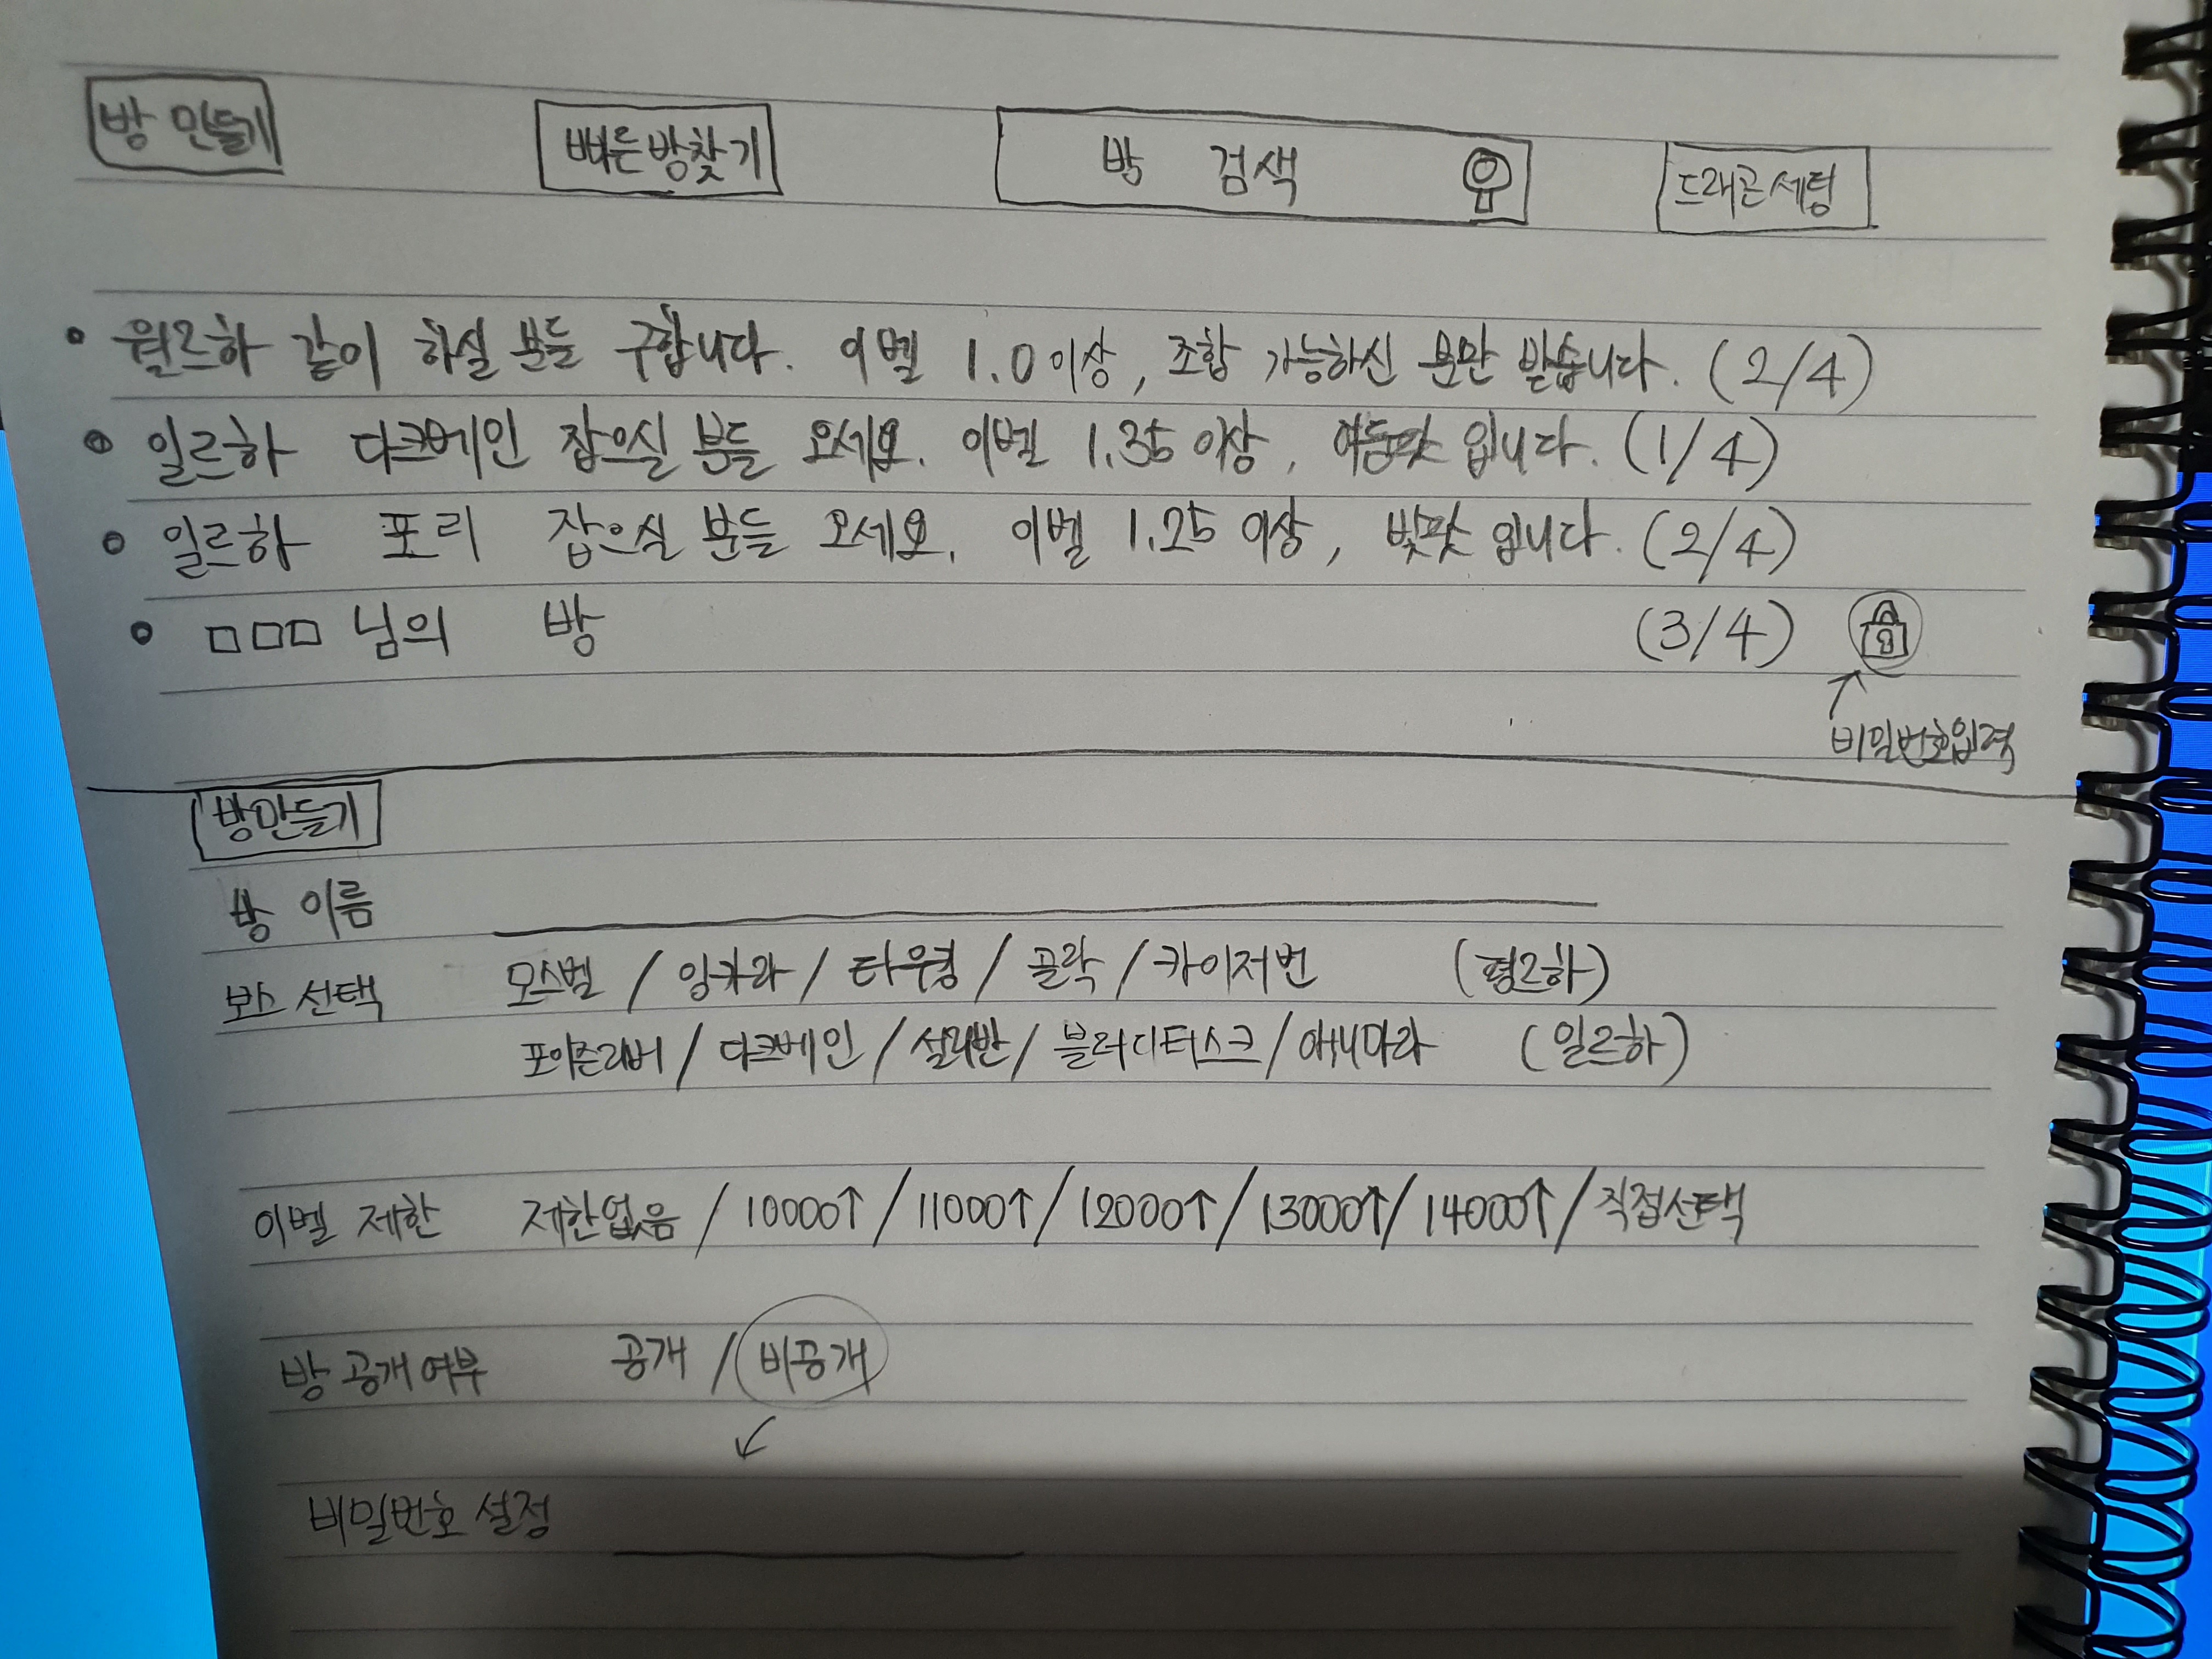 방 만들기 빠른방찾기 방 검색 드래곤세팅
• 월르하 같이 하실 분들 구합니다. 이벨 1.0 이상, 조합 가능하신 분만 받습니다. (2/4)
• 일르하 다크메인 잡으실 분들 오세요. 이벨 1.35 이상, 어둠팟 입니다. (1/4)
• 일르하 포리 잡으실 분들 오세요. 이벨 1.25 이상, 빛팟 입니다. (2/4)
• □□□ 님의 방 (3/4)
비밀번호입력
방만들기
방 이름
보스 선택 모스벨 / 잉카라 / 타우렁 / 골락 / 카이저번
포이즌리버 / 다크베인 / 설리반 / 블러디터스크 / 애니마라 (일르하)
이벨 제한 제한없음 / 10000↑ / 11000↑ / 12000↑ / 13000↑ / 14000↑ / 직접선택
방 공개 여부 공개 / 비공개
비밀번호 설정